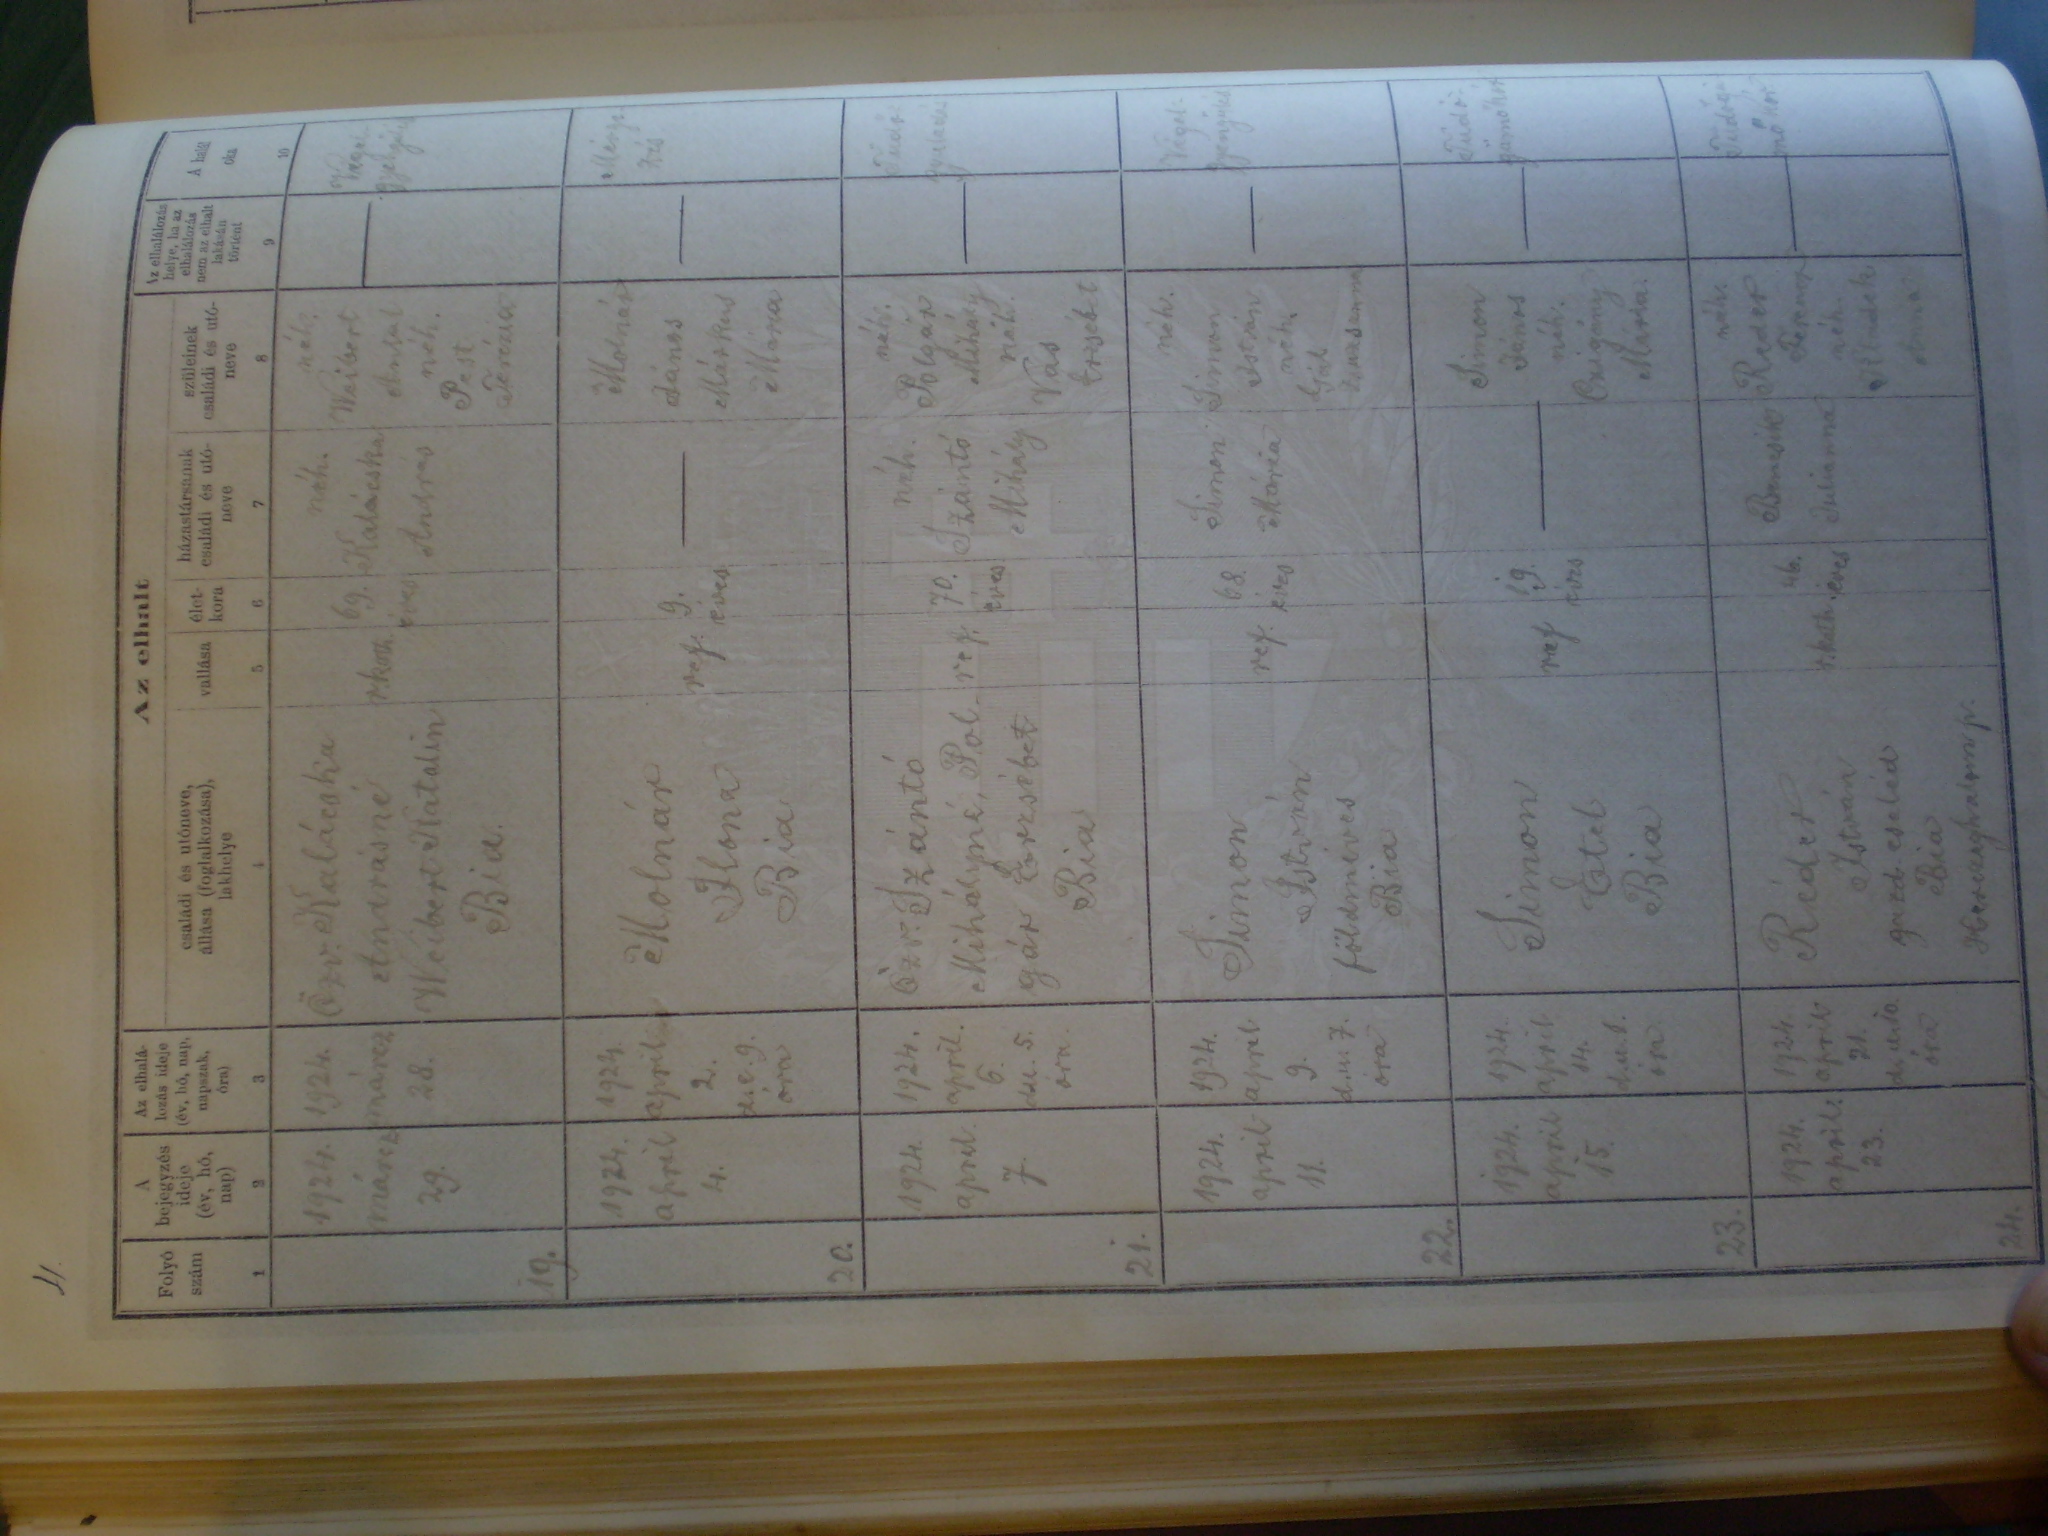 4.
Az elhalt
Folyó
szám
A
bejegyzés
ideje
(év, hó,
nap)
Az elhalá-
lozás ideje
(év, hó, nap,
napszak,
óra)
családi és utóneve,
állása (foglalkozása),
lakhelye
vallása
élet-
kora
házastársának
családi és utó-
neve
szüleinek
családi és utó-
neve
Az elhalálozás
helye, ha az
elhalálozás
nem az elhalt
lakásán
történt
A halál
oka
1
2
3
4
5
6
7
8
9
10
19.
1924.
márcz
29.
1924.
márcz
28.
Özv. Kalácska
Andrásné
Weibert Katalin
Bia.
r. kath.
69.
éves
néh.
Kalácska
András
néh.
Weibert
Antal
néh.
Pest
Terézia
20.
1924.
april
4.
1924.
april
2.
d.e. 9.
óra
Molnár
Ilona
Bia
ref.
9.
éves
Molnár
János
Márkus
Mária
21.
1924
april.
7.
1924.
april.
6.
d.e. 5.
óra.
Özv. Szántó
Mihályné, Pol-
gár Erzsébet
Bia
ref.
70.
éves
néh.
Szántó
Mihály
néh.
Polgár
Mihály
néh.
Vas
Erzsébet
22.
1924.
april
11.
1924.
april
9.
d.u. 7.
óra
Simon
István
földmíves
Bia
ref.
68.
éves
Simon
Mária
néh.
Simon
István
néh.
Gál
Zsuzsanna
23.
1924.
april
15.
1924.
april
14.
óra
Simon
Etel
Bia
ref
19.
éves
Simon
János
néh.
Czigány
Mária.
Tüdő-
gümőkór
24.
1924.
april.
23.
1924.
april
21.
óra
Réder
István
gazd. cseléd
Bia
r. kath.
46.
éves
Julianna
néh.
Reder
Ferencz
néh.
Anna